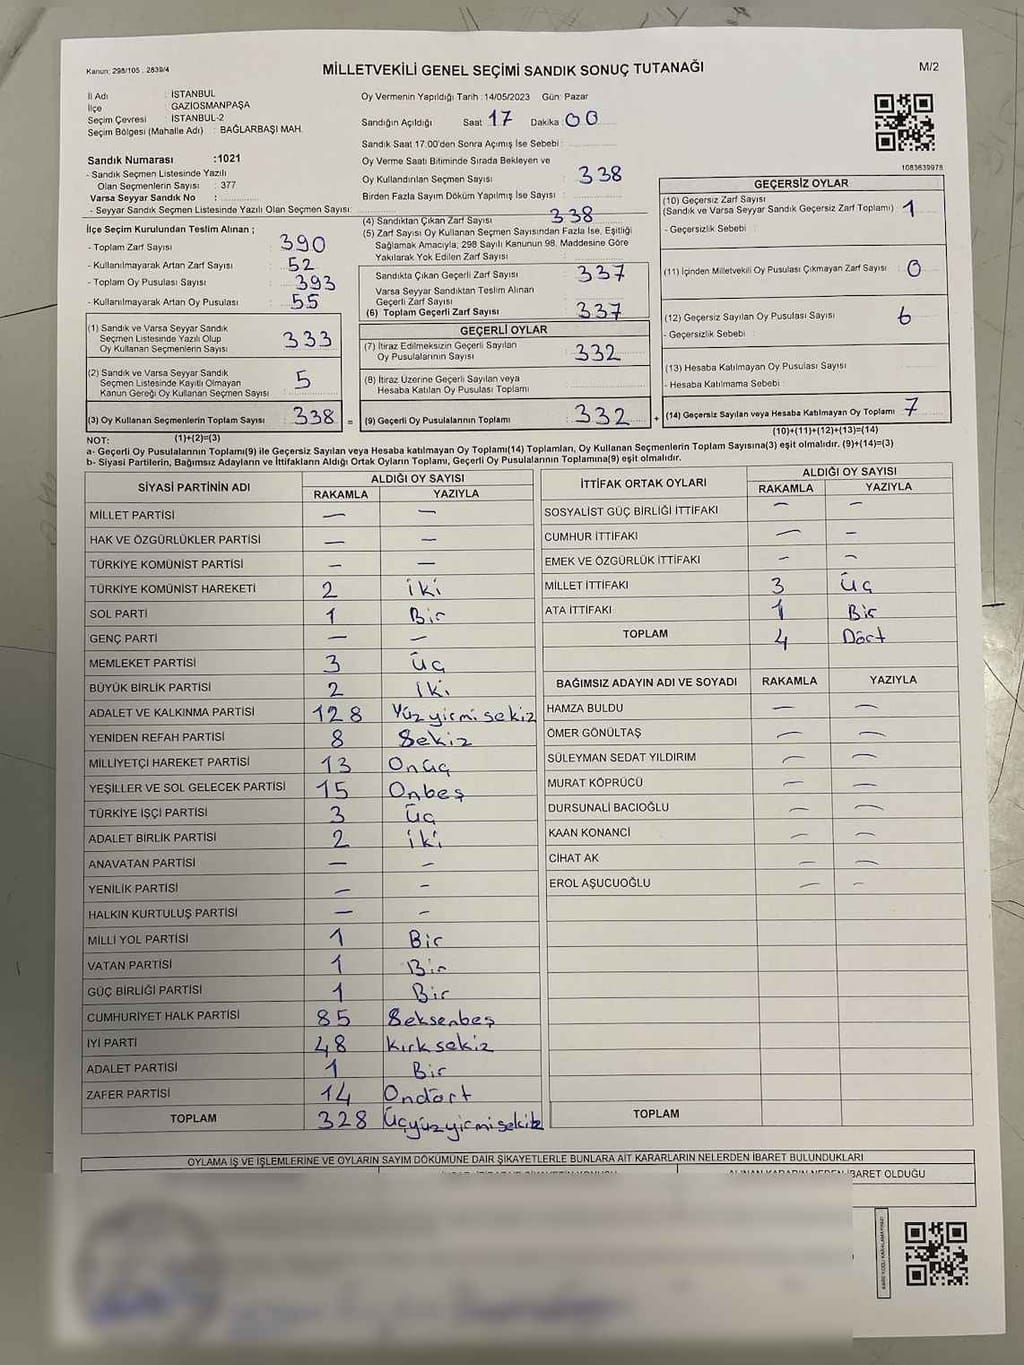 Kanun: 298/105 . 2839/4
MİLLETVEKİLİ GENEL SEÇİMİ SANDIK SONUÇ TUTANAĞI
M/2
İl Adı : İSTANBUL
İlçe : GAZİOSMANPAŞA
Seçim Çevresi : İSTANBUL-2
Seçim Bölgesi (Mahalle Adı) : BAĞLARBAŞI MAH.
Sandık Numarası :1021
- Sandık Seçmen Listesinde Yazılı
Olan Seçmenlerin Sayısı : 377
Varsa Seyyar Sandık No :
- Seyyar Sandık Seçmen Listesinde Yazılı Olan Seçmen Sayısı:
İlçe Seçim Kurulundan Teslim Alınan ;
- Toplam Zarf Sayısı : 390
- Kullanılmayarak Artan Zarf Sayısı : 52
- Toplam Oy Pusulası Sayısı : 393
- Kullanılmayarak Artan Oy Pusulası : 55
(1) Sandık ve Varsa Seyyar Sandık
Seçmen Listesinde Yazılı Olup
Oy Kullanan Seçmenlerin Sayısı : 333
(2) Sandık ve Varsa Seyyar Sandık
Seçmen Listesinde Kayıtlı Olmayan
Kanun Gereği Oy Kullanan Seçmen Sayısı : 5
(3) Oy Kullanan Seçmenlerin Toplam Sayısı : 338 =
Oy Vermenin Yapıldığı Tarih : 14/05/2023 Gün: Pazar
Sandığın Açıldığı Saat 17 Dakika 00
Sandık Saat 17.00'den Sonra Açımış İse Sebebi :
Oy Verme Saati Bitiminde Sırada Bekleyen ve
Oy Kullandırılan Seçmen Sayısı : 338
Birden Fazla Sayım Döküm Yapılmış İse Sayısı :
(4) Sandıktan Çıkan Zarf Sayısı : 338
(5) Zarf Sayısı Oy Kullanan Seçmen Sayısından Fazla İse, Eşitliği
Sağlamak Amacıyla; 298 Sayılı Kanunun 98. Maddesine Göre
Yakılarak Yok Edilen Zarf Sayısı :
Sandıkta Çıkan Geçerli Zarf Sayısı : 337
Varsa Seyyar Sandıktan Teslim Alınan
Geçerli Zarf Sayısı :
(6) Toplam Geçerli Zarf Sayısı : 337
GEÇERLİ OYLAR
(7) İtiraz Edilmeksizin Geçerli Sayılan
Oy Pusulalarının Sayısı : 332
(8) İtiraz Üzerine Geçerli Sayılan veya
Hesaba Katılan Oy Pusulası Toplamı :
(9) Geçerli Oy Pusulalarının Toplamı : 332 +
1083639978
GEÇERSİZ OYLAR
(10) Geçersiz Zarf Sayısı
(Sandık ve Varsa Seyyar Sandık Geçersiz Zarf Toplamı) : 1
- Geçersizlik Sebebi :
(11) İçinden Milletvekili Oy Pusulası Çıkmayan Zarf Sayısı : 0
(12) Geçersiz Sayılan Oy Pusulası Sayısı : 6
- Geçersizlik Sebebi :
(13) Hesaba Katılmayan Oy Pusulası Sayısı :
- Hesaba Katılmama Sebebi :
(14) Geçersiz Sayılan veya Hesaba Katılmayan Oy Toplamı : 7
(10)+(11)+(12)+(13)=(14)
NOT: (1)+(2)=(3)
a- Geçerli Oy Pusulalarının Toplamı(9) ile Geçersiz Sayılan veya Hesaba Katılmayan Oy Toplamı(14) Toplamları, Oy Kullanan Seçmenlerin Toplam Sayısına(3) eşit olmalıdır. (9)+(14)=(3)
b- Siyasi Partilerin, Bağımsız Adayların ve İttifakların Aldığı Ortak Oyların Toplamı, Geçerli Oy Pusulalarının Toplamına(9) eşit olmalıdır.
SİYASİ PARTİNİN ADI ALDIĞI OY SAYISI
RAKAMLA YAZIYLA
MİLLET PARTİSİ — —
HAK VE ÖZGÜRLÜKLER PARTİSİ — —
TÜRKİYE KOMÜNİST PARTİSİ — —
TÜRKİYE KOMÜNİST HAREKETİ 2 iki
SOL PARTİ 1 Bir
GENÇ PARTİ — —
MEMLEKET PARTİSİ 3 Üç
BÜYÜK BİRLİK PARTİSİ 2 İki
ADALET VE KALKINMA PARTİSİ 128 Yüzyirmisekiz
YENİDEN REFAH PARTİSİ 8 Sekiz
MİLLİYETÇİ HAREKET PARTİSİ 13 Onüç
YEŞİLLER VE SOL GELECEK PARTİSİ 15 Onbeş
TÜRKİYE İŞÇİ PARTİSİ 3 Üç
ADALET BİRLİK PARTİSİ 2 iki
ANAVATAN PARTİSİ — —
YENİLİK PARTİSİ — —
HALKIN KURTULUŞ PARTİSİ — —
MİLLİ YOL PARTİSİ 1 Bir
VATAN PARTİSİ 1 Bir
GÜÇ BİRLİĞİ PARTİSİ 1 Bir
CUMHURİYET HALK PARTİSİ 85 Seksenbeş
İYİ PARTİ 48 Kırksekiz
ADALET PARTİSİ 1 Bir
ZAFER PARTİSİ 14 Ondört
TOPLAM 328 Üçyüzyirmisekiz
İTTİFAK ORTAK OYLARI ALDIĞI OY SAYISI
RAKAMLA YAZIYLA
SOSYALİST GÜÇ BİRLİĞİ İTTİFAKI — —
CUMHUR İTTİFAKI — —
EMEK VE ÖZGÜRLÜK İTTİFAKI — —
MİLLET İTTİFAKI 3 Üç
ATA İTTİFAKI 1 Bir
TOPLAM 4 Dört
BAĞIMSIZ ADAYIN ADI VE SOYADI RAKAMLA YAZIYLA
HAMZA BULDU — —
ÖMER GÖNÜLTAŞ — —
SÜLEYMAN SEDAT YILDIRIM — —
MURAT KÖPRÜCÜ — —
DURSUNALİ BACIOĞLU — —
KAAN KONANCİ — —
CİHAT AK — —
EROL AŞUCUOĞLU — —
TOPLAM
OYLAMA İŞ VE İŞLEMLERİNE VE OYLARIN SAYIM DÖKÜMÜNE DAİR ŞİKAYETLERLE BUNLARA AİT KARARLARIN NELERDEN İBARET BULUNDUKLARI
ALINAN KARARIN NEDEN İBARET OLDUĞU